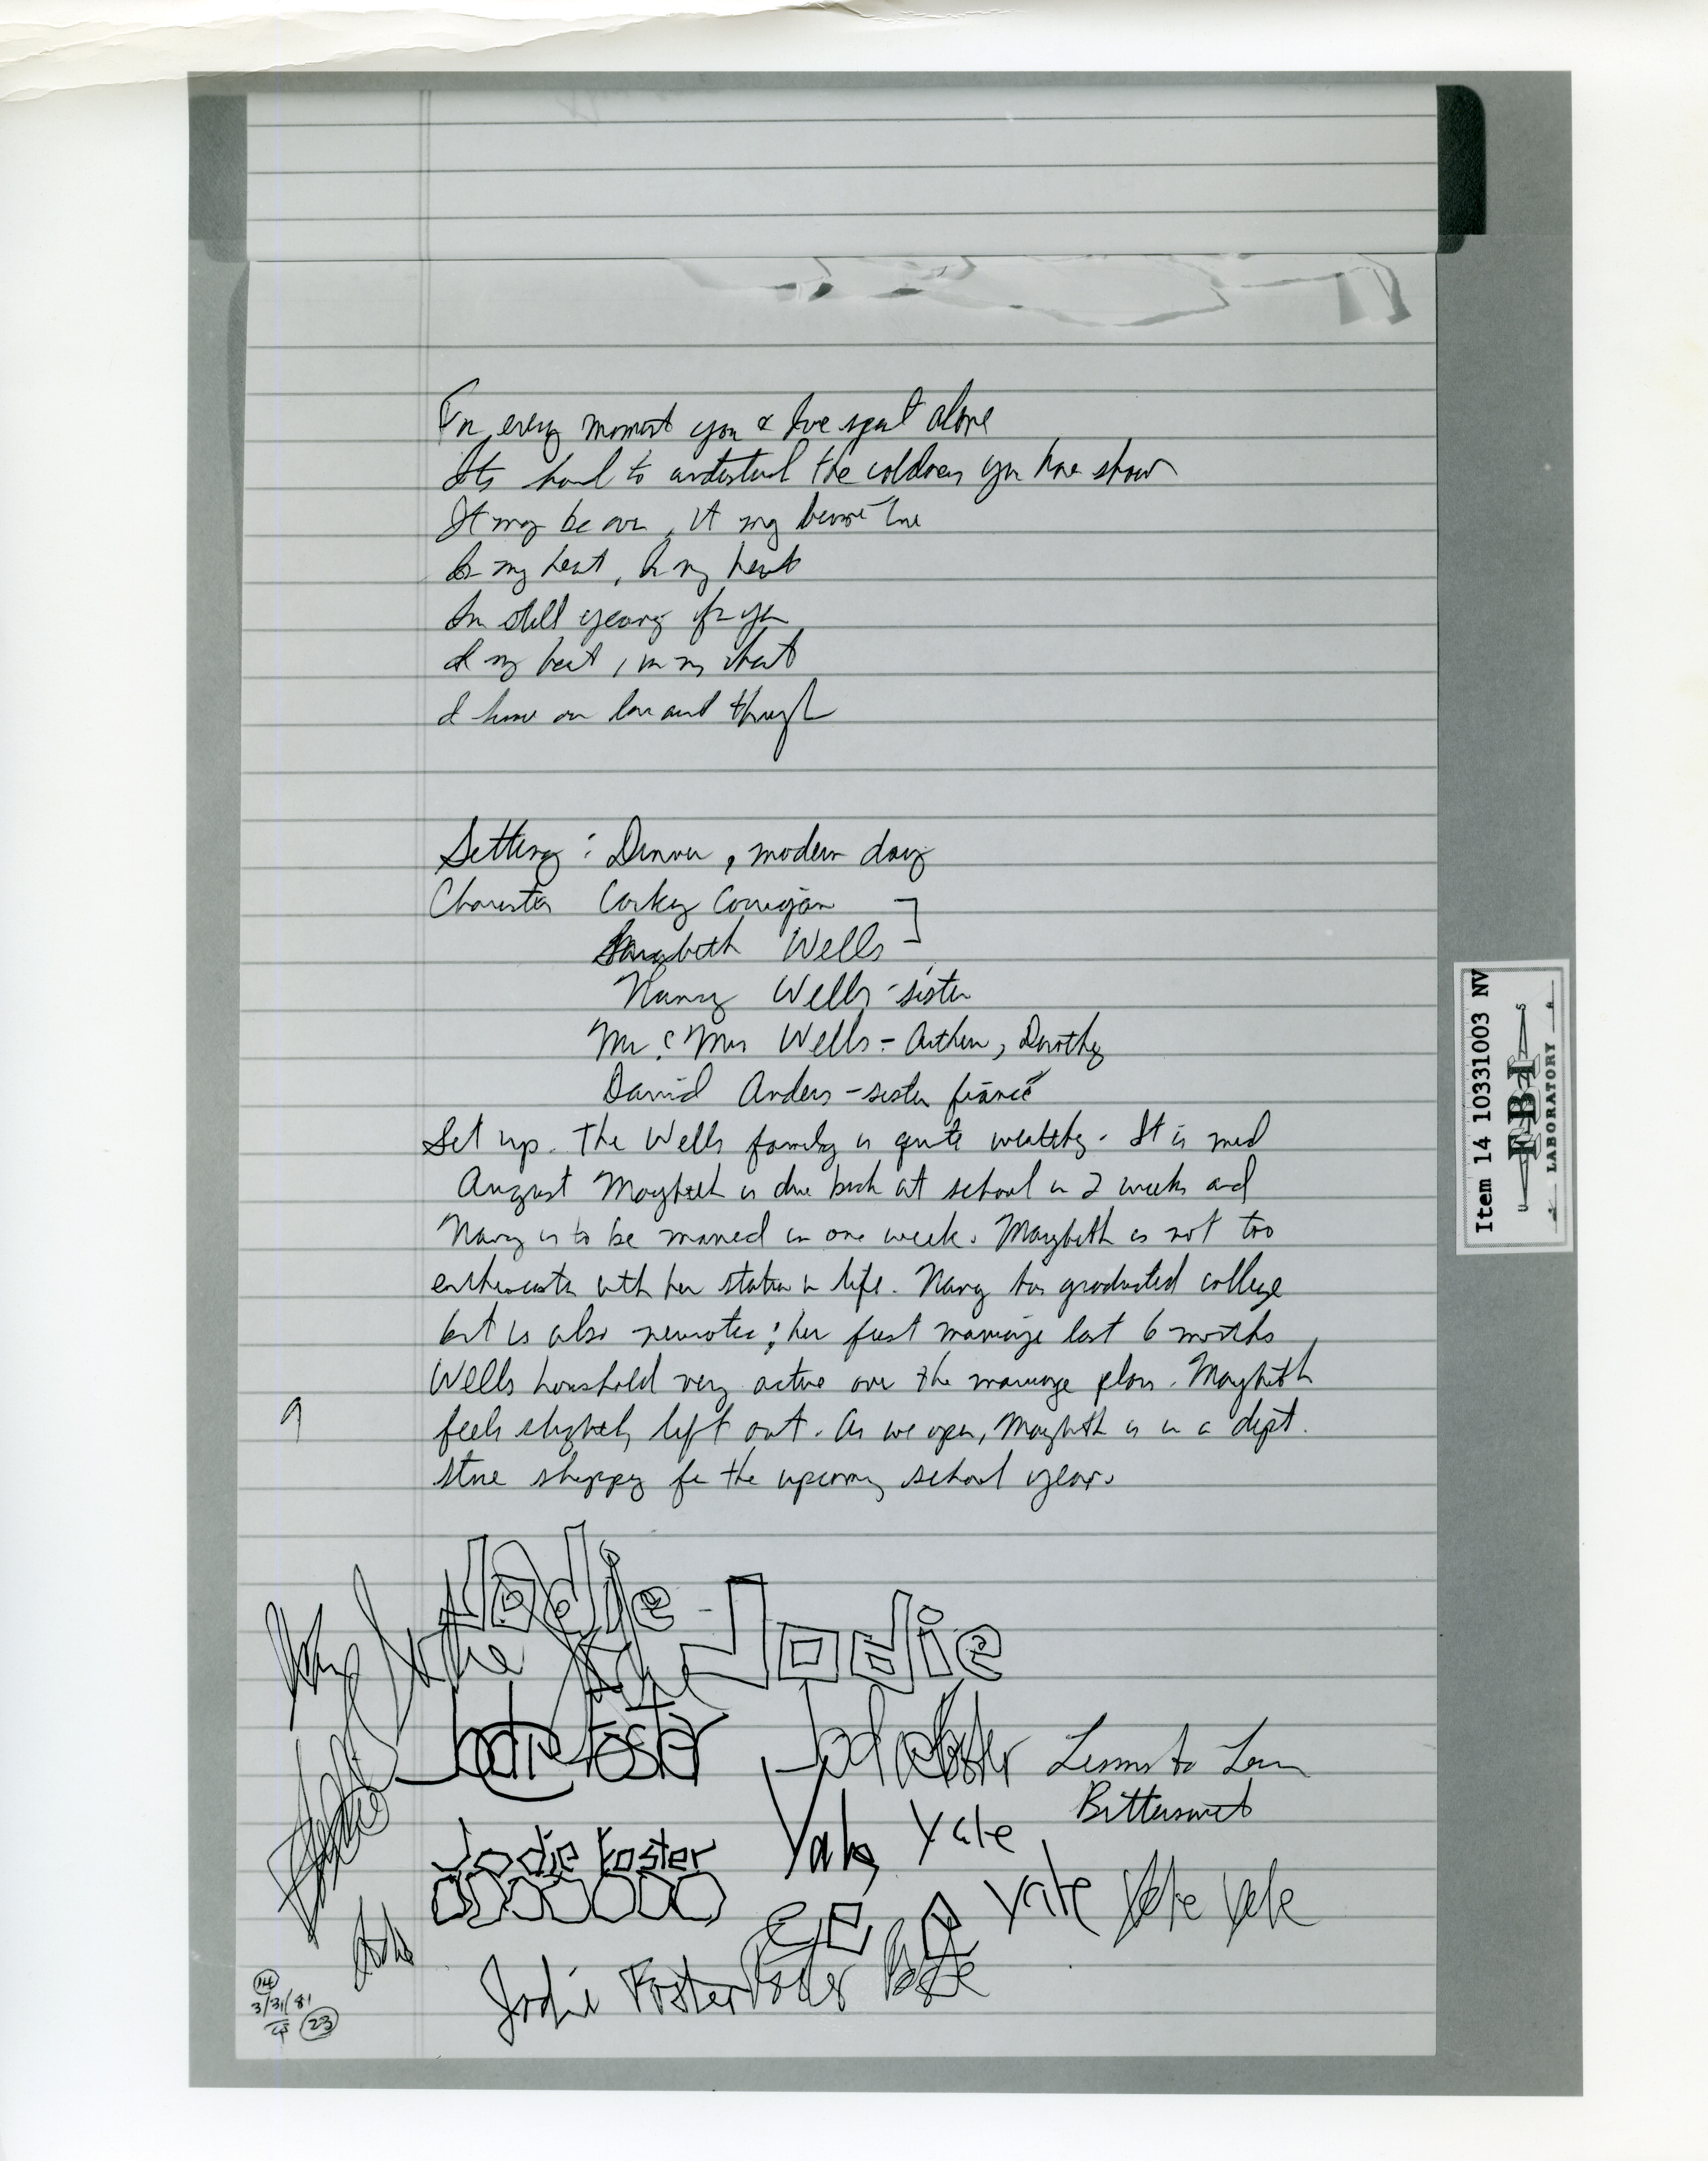 For every moment you & I've spent alone
Its hard to understand the coldness you have shown
It may be over, it may become true
In my heart, In my heart
Im still yearng for you
In my heart, in my heart
I know our love
Setting : Denver, modern day
Character Corkey Corrigan
Marybeth Wells
Nancy Wells - sister
Mr & Mrs Wells - Arthur, Dorothy
David Anders - sister fiancé
Set up. The Wells family is quite wealthy. It is mid
August Marybeth is due back at school in 2 weeks and
Nancy is to be married in one week. Marybeth is not too
with her station in life. Nancy has graduated college
but is also neurotic; her first marriage last 6 months
Wells household very active over the marriage plan. Marybeth
feels slightly left out. As we open, Marybeth is in a dept.
store shopping for the upcoming school year.
9
Jodie Jodie
Jodie Foster Jodie Foster Lesson to
Bittersweet
Jodie Foster Yale Yale
Yale Yale Yale
Jodie Foster Foster
14
3/31/81
23
Item 14 10331003 NV
U S
F·B·I
LABORATORY